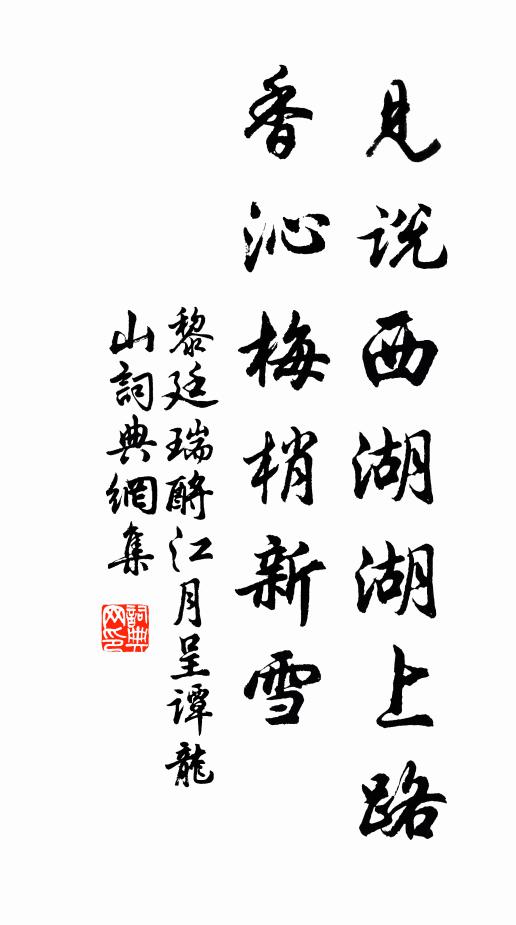 見説西湖湖上路
香沁梅梢新雪
黎廷瑞酹江月呈譚龍
山詞典網集
詞典網印